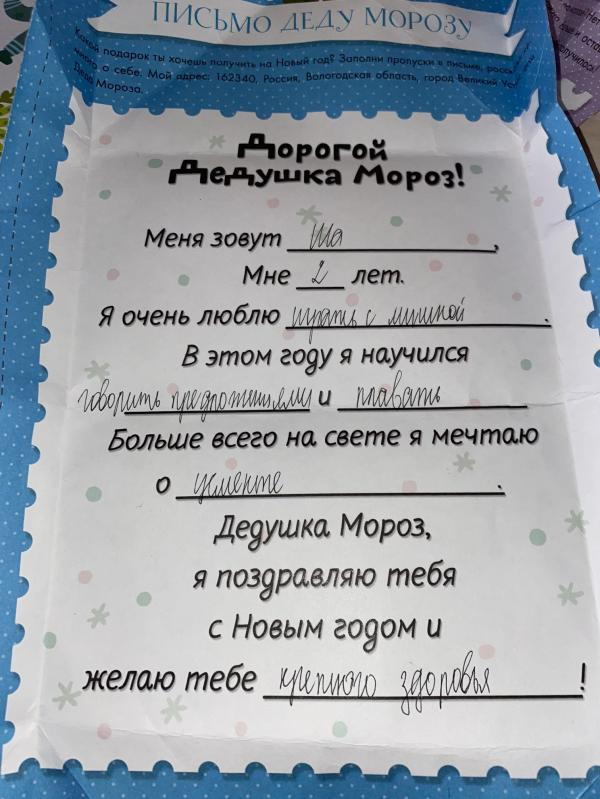 ПИСЬМО ДЕДУ МОРОЗУ
Какой подарок ты хочешь получить на Новый год? Заполни пропуски в письме,
много о себе. Мой адрес: 162340, Россия, Вологодская область, город Великий
Деда Мороза.
Дорогой
Дедушка Мороз!
Меня зовут Ша,
Мне 2 лет.
Я очень люблю играть с мишкой.
В этом году я научился
говорить предложениями и плавать
Больше всего на свете я мечтаю
о.
Дедушка Мороз,
я поздравляю тебя
с Новым годом и
желаю тебе крепкого здоровья!